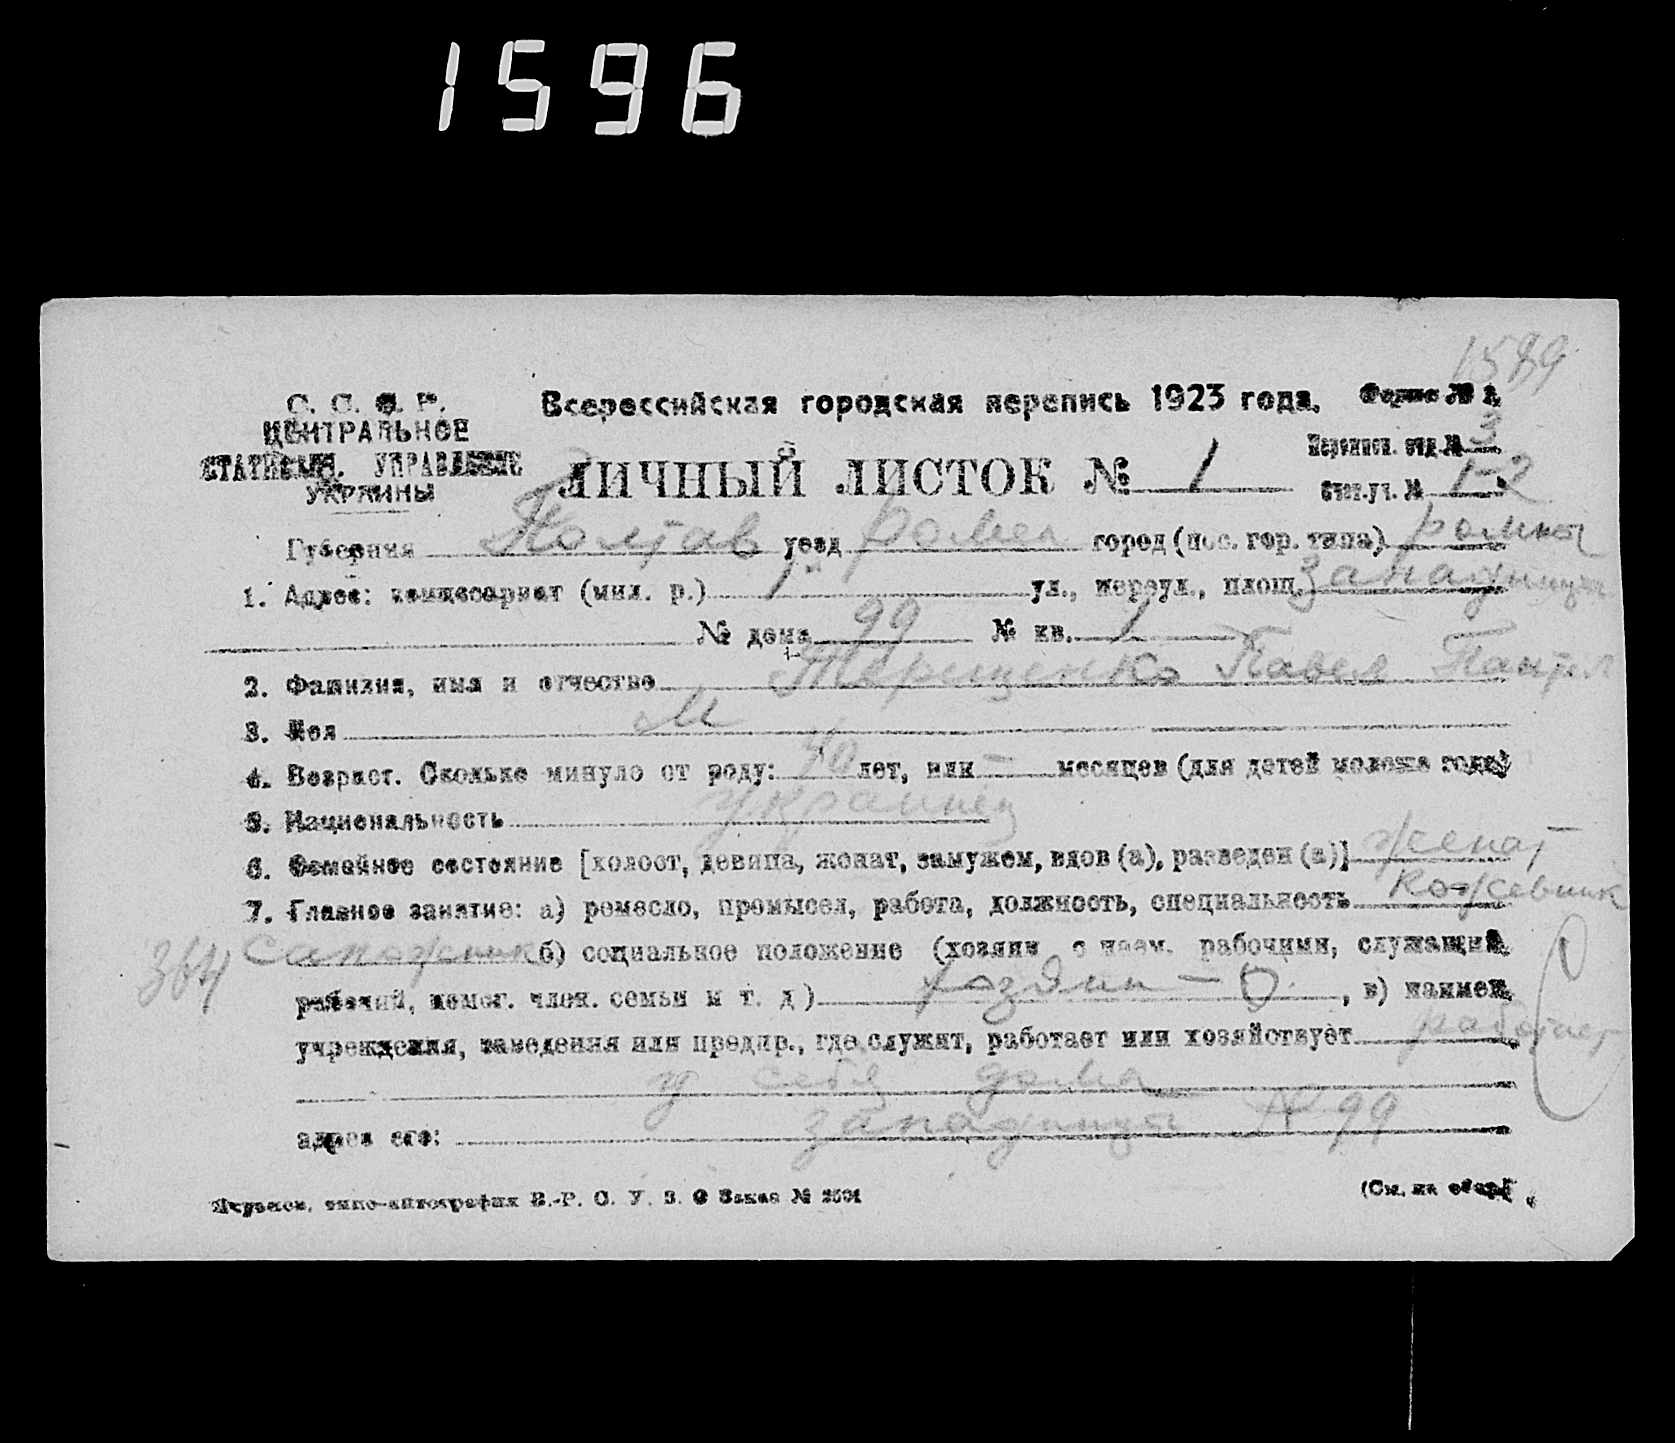 1596
1589
С. С. С. Р.
ЦЕНТРАЛЬНОЕ
СТАТИСТИЧ. УПРАВЛЕНИЕ
УКРАИНЫ
Всероссийская городская перепись 1923 года.
Форма № 1.
ЛИЧНЫЙ ЛИСТОК № 1
Переписн. отд. № 3
Счет.-уч. № 1-2
Губерния Полтав уезд Ромен город (пос. гор. типа) ромны
1. Адрес: комиссариат (мил. р.) 1 ул., переул., площ. западинца
№ дома 99 № кв. 1
2. Фамилия, имя и отчество Терещенко Павел Пантел
3. Пол М
4. Возраст. Сколько минуло от роду: 40 лет, или — месяцев (для детей моложе года)
5. Национальность украинец
6. Семейное состояние [холост, девица, женат, замужем, вдов (а), разведен (а)] женат
7. Главное занятие: а) ремесло, промысел, работа, должность, специальность кожевник
364 сапожник б) социальное положение (хозяин с наем. рабочими, служащий,
рабочий, помог. член. семьи и т. д) хозяин - О. , в) наимен.
учреждения, заведения или предпр., где служит, работает или хозяйствует работает
у себя дома
адрес его: западинца № 99
типо-литография В.-Р. С. У. З. О Заказ №
(См. на обор.)